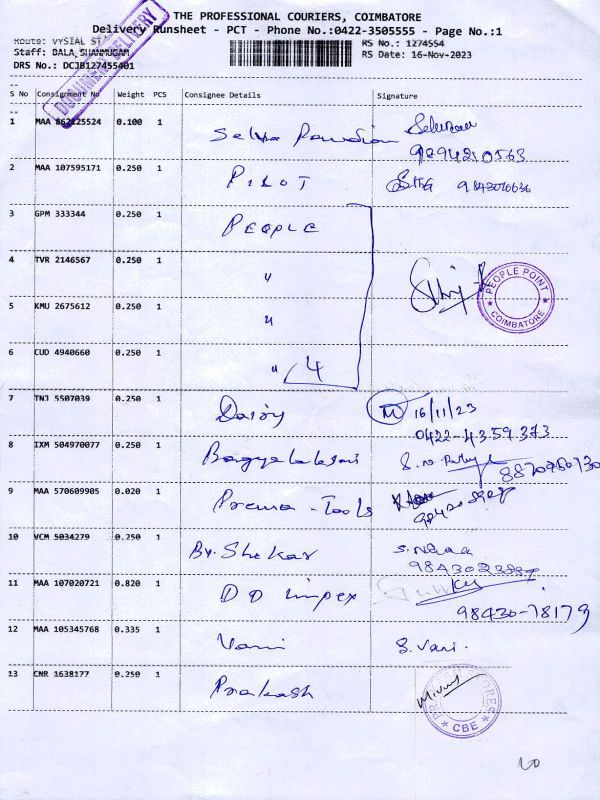 THE PROFESSIONAL COURIERS, COIMBATORE
Delivery Runsheet - PCT - Phone No.:0422-3505555 - Page No.:1
Route: VYSIAL ST
RS No.: 1274554
Staff: BALA SHANMUGAM
RS Date: 16-Nov-2023
DRS No.: DCJB127455401
DOCUMENT DELIVERY
S No Consignment No Weight PCS Consignee Details Signature
1 MAA 862125524 0.100 1 Selva Pandian
9894210563
2 MAA 107595171 0.250 1 PILOT
3 GPM 333344 0.250 1 PEOPLE
4 TVR 2146567 0.250 1 "
PEOPLE POINT COIMBATORE
5 KMU 2675612 0.250 1 "
6 CUD 4940660 0.250 1 " 4
7 TNJ 5507039 0.250 1 Daisy 16/11/23
0422-4359373
8 IXM 504970077 0.250 1 Bagyalakshmi
9 MAA 570609905 0.020 1 Prema - Tools
10 VCM 5034279 0.250 1 By. Shekar
11 MAA 107020721 0.820 1 DD impex
98430-78179
12 MAA 105345768 0.335 1 Vani S. Vani.
13 CNR 1638177 0.250 1 Prakash
CBE